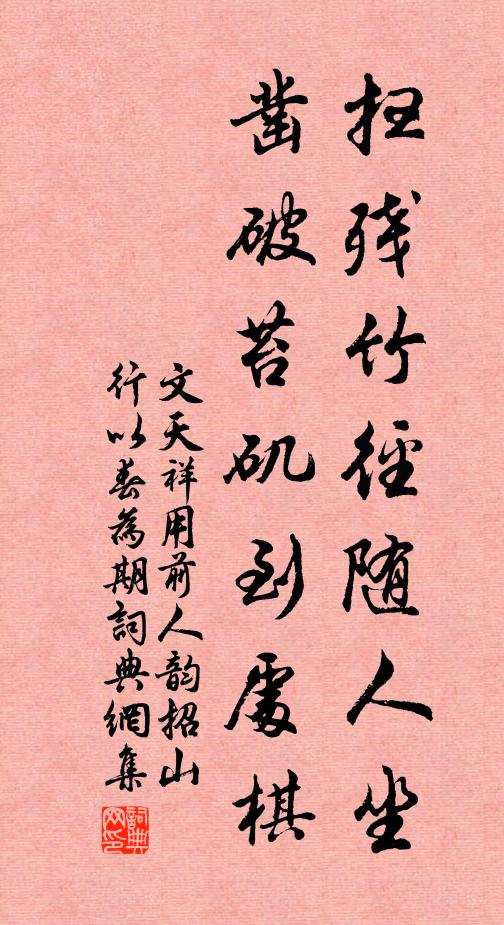 扫残竹径随人坐
凿破苔矶到处棋
文天祥用前人韵招山
行以春为期词典網集
詞典网印